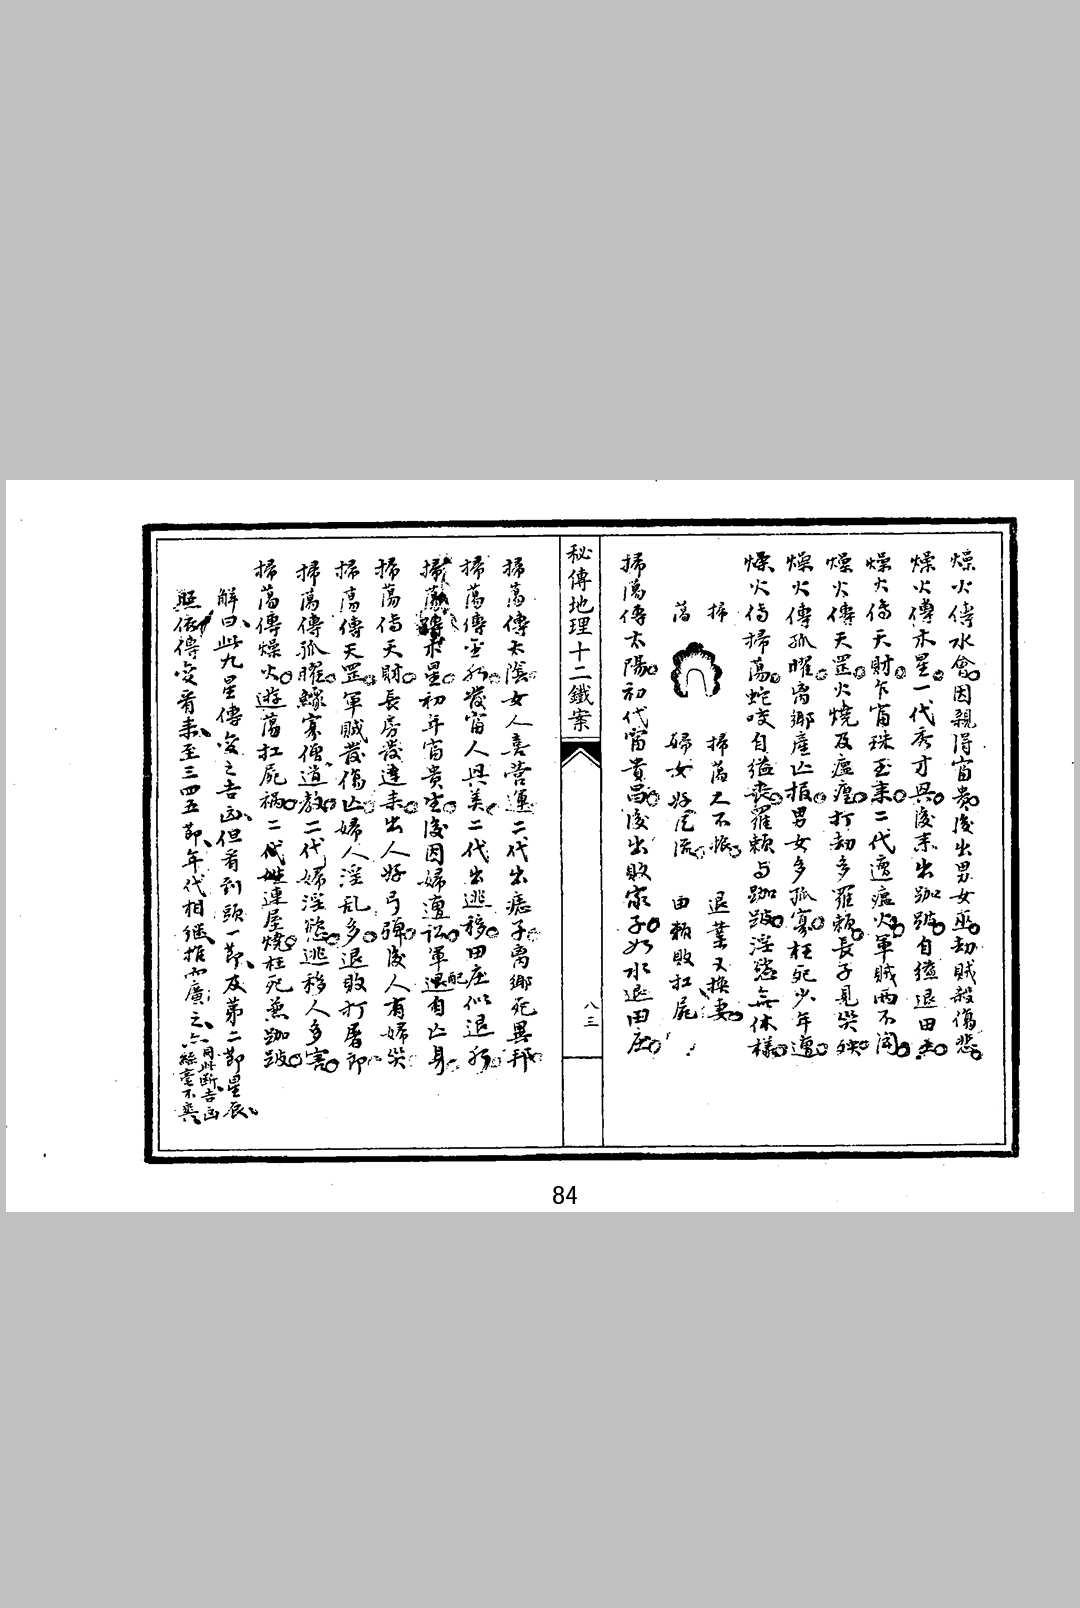 燥火傳水會因親得富貴後出男女巫劫賊殺傷悲
燥火傳木星一代秀才興後來出跏跛自縊退田
燥火傳天財乍富珠玉來二代遭瘟火軍賊兩不
燥火傳天罡火燒及瘟𤸁打劫多羅賴長子見哭
燥火傳孤曜离鄉產亾損男女多孤寡枉死少年遭
燥火傳掃蕩蛇咬自縊喪羅賴与跏跛淫慾無休樣
掃蕩
掃蕩又不 退業又換妻
婦女好風流 由賴敗扛屍
掃蕩傳太陽初代富貴昌後出敗家子如水退田庄
秘傳地理十二鐵案
八三
掃蕩傳太陰女人喜營運二代出痣子离鄉死異邦
掃蕩傳 發富人興美二代出逃移田庄似退
掃蕩 星初年富貴生後因婦遭訟軍配自亾身
掃蕩傳天財長房發達來出人好弓彈後人有婦
掃蕩傳天罡軍賊發傷亾婦人淫乱多退敗打屠
掃蕩傳孤曜鰥寡僧道教二代婦淫慾逃移人多害
掃蕩傳燥火遊蕩扛屍禍二代 連屋燒枉死兼跏跛
解曰此九星傳變之吉凶但看到頭一節及第二節星辰
照依傳變看來至三四五節年代相繼推而廣之亦同此斷吉凶絲毫不爽
84